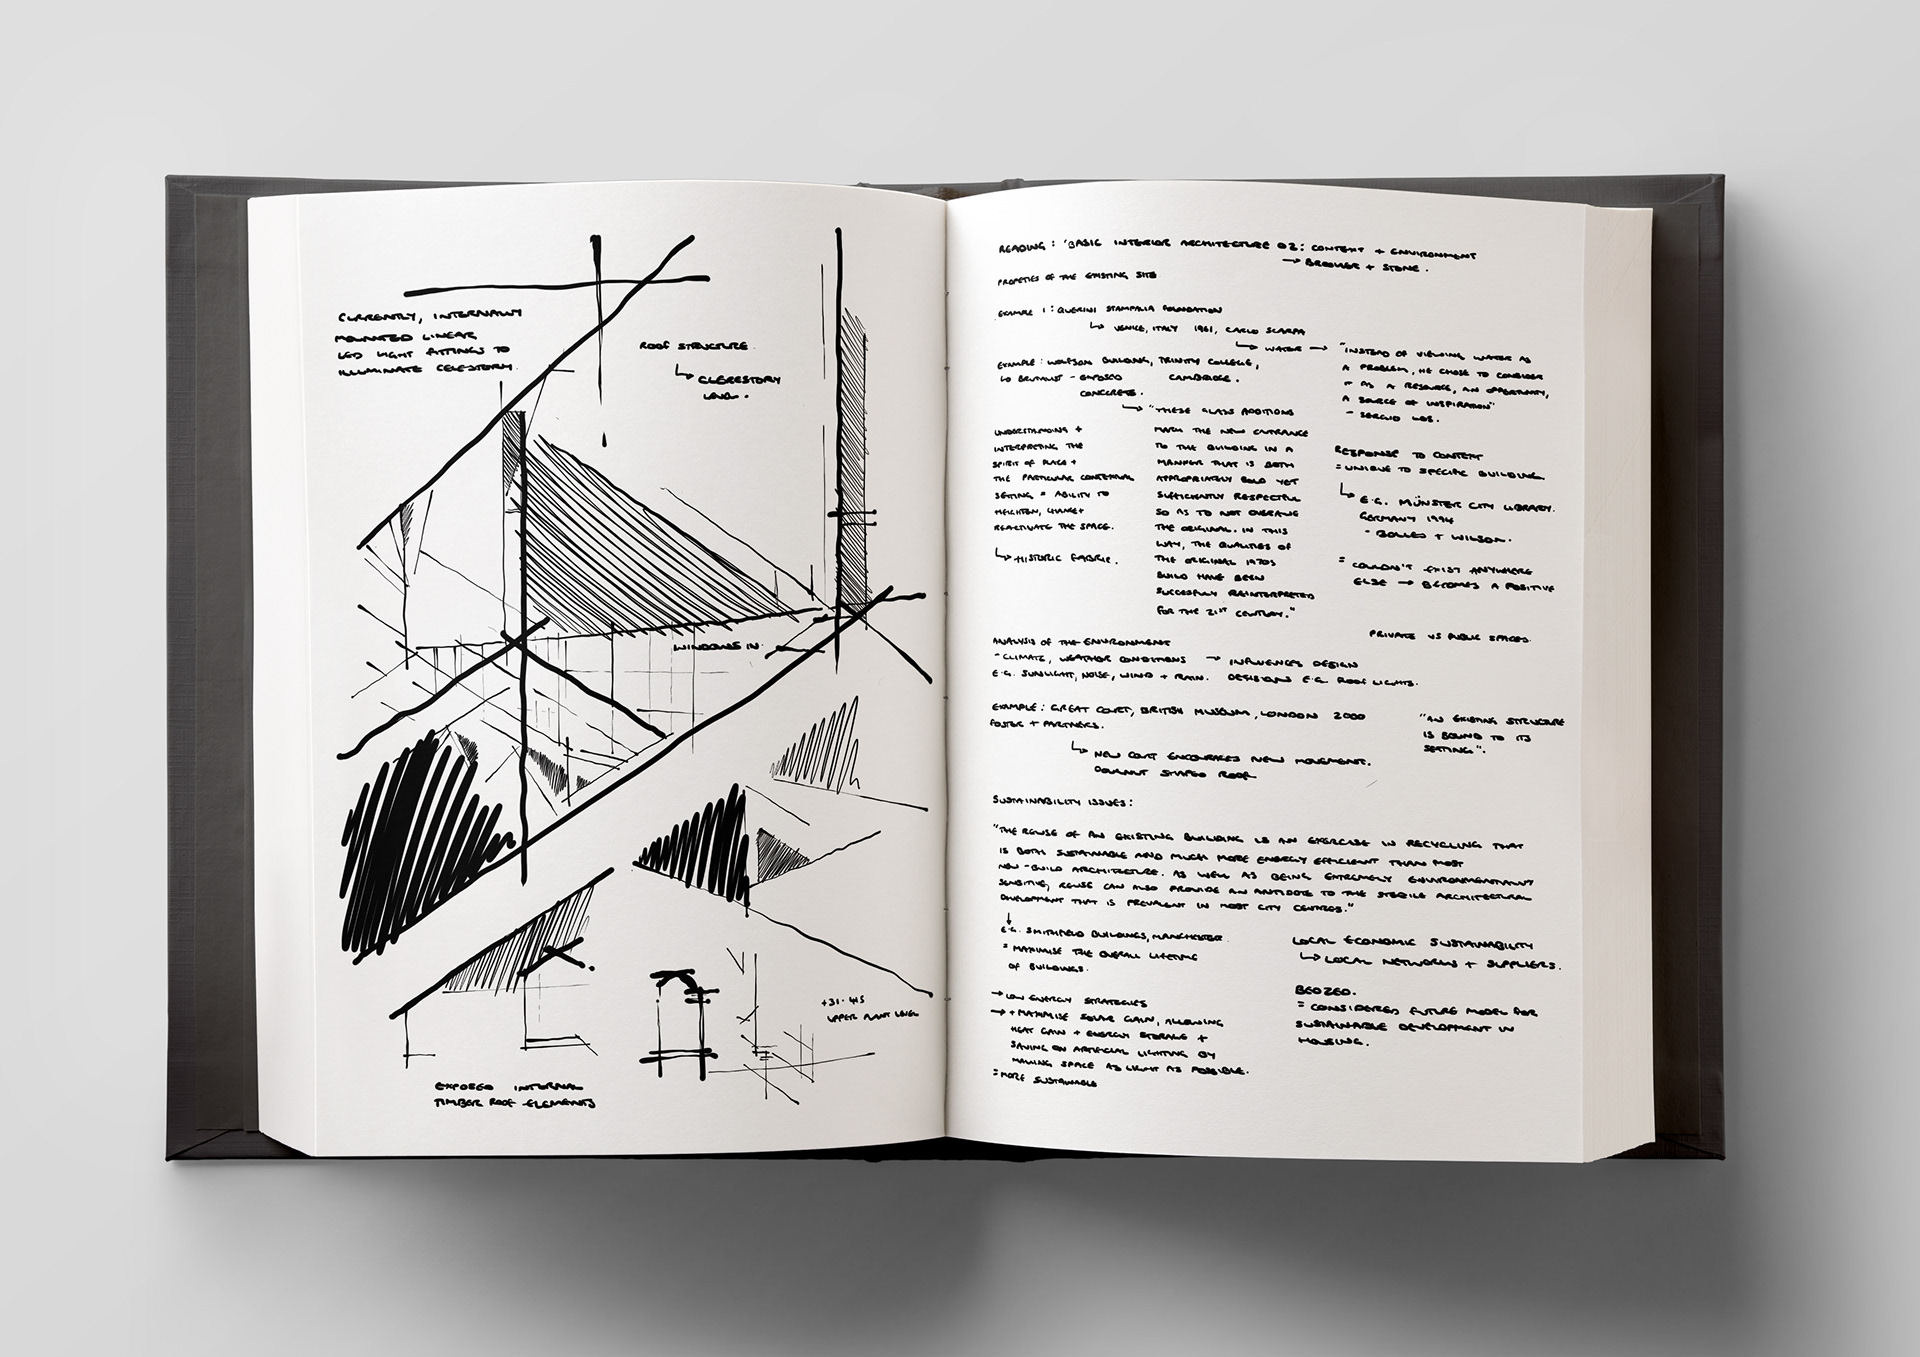 CURRENTLY, INTERNALLY
MOUNTED LINEAR
LED LIGHT FITTINGS TO
ILLUMINATE CELESTORY.
ROOF STRUCTURE.
↳ CLERESTORY
LEVEL.
WINDOWS IN.
+31.415
UPPER PLANT LEVEL
EXPOSED INTERNAL
TIMBER ROOF ELEMENTS
READING : 'BASIC INTERIOR ARCHITECTURE 02: CONTEXT + ENVIRONMENT
→ BROOKER + STONE.
PROPETIES OF THE EXISTING SITE
EXAMPLE 1 : QUERINI STAMPALIA FOUNDATION
↳ VENICE, ITALY 1961, CARLO SCARPA
↳ WATER → "INSTEAD OF VIEWING WATER AS
A PROBLEM, HE CHOSE TO CONSIDER
IT AS A RESOURCE, AN OPPORTUNITY,
A SOURCE OF INSPIRATION"
- SERGIO LOS.
EXAMPLE : WOLFSON BUILDING, TRINITY COLLEGE,
↳ BRUTALIST - EXPOSED CAMBRIDGE.
CONCRETE.
↳ "THESE GLASS ADDITIONS
MARK THE NEW ENTRANCE
TO THE BUILDING IN A
MANNER THAT IS BOTH
APPROPRIATELY BOLD YET
SUFFICIENTLY RESPECTFUL
SO AS TO NOT OVERAWE
THE ORIGINAL. IN THIS
WAY, THE QUALITIES OF
THE ORIGINAL 1970S
BUILD HAVE BEEN
SUCCESFULLY REINTERPRETED
FOR THE 21ST CENTURY."
UNDERSTANDING +
INTERPRETING THE
SPIRIT OF PLACE +
THE PARTICULAR CONTEXTUAL
SETTING = ABILITY TO
HEIGHTEN, CHANGE +
REACTIVATE THE SPACE.
↳ HISTORIC FABRIC.
RESPONSE TO CONTEXT
= UNIQUE TO SPECIFIC BUILDING.
↳ E.G. MÜNSTER CITY LIBRARY.
GERMANY 1994
- BOLLES + WILSON.
= COULDN'T EXIST ANYWHERE
ELSE → BECOMES A POSITIVE
PRIVATE VS PUBLIC SPACES.
ANALYSIS OF THE ENVIRONMENT
- CLIMATE, WEATHER CONDITIONS → INFLUENCES DESIGN
E.G. SUNLIGHT, NOISE, WIND + RAIN. DECISIONS E.G. ROOF LIGHTS.
EXAMPLE : GREAT COURT, BRITISH MUSEUM, LONDON 2000
FOSTER + PARTNERS.
↳ NEW COURT ENCOURAGES NEW MOVEMENT.
DOUGNUT SHAPED ROOF
"AN EXISTING STRUCTURE
IS BOUND TO ITS
SETTING".
SUSTAINABILITY ISSUES :
"THE REUSE OF AN EXISTING BUILDING IS AN EXERCISE IN RECYCLING THAT
IS BOTH SUSTAINABLE AND MUCH MORE ENERGY EFFICIENT THAN MOST
NEW-BUILD ARCHITECTURE. AS WELL AS BEING EXTREMELY ENVIRONMENTALLY
SENSITIVE, REUSE CAN ALSO PROVIDE AN ANTIDOTE TO THE STERILE ARCHITECTURAL
DEVELOPMENT THAT IS PREVALENT IN MOST CITY CENTRES."
↓
E.G. SMITHFIELD BUILDINGS, MANCHESTER.
= MAXIMISE THE OVERALL LIFETIME
OF BUILDINGS.
→ LOW ENERGY STRATEGIES
→ + MAXIMISE SOLAR GAIN, ALLOWING
HEAT GAIN + ENERGY STORAGE +
SAVING ON ARTIFICIAL LIGHTING BY
MAKING SPACE AS LIGHT AS POSSIBLE.
= MORE SUSTAINABLE
LOCAL ECONOMIC SUSTAINABILITY
↳ LOCAL NETWORKS + SUPPLIERS.
BEDZED.
= CONSIDERED FUTURE MODEL FOR
SUSTAINABLE DEVELOPMENT IN
HOUSING.